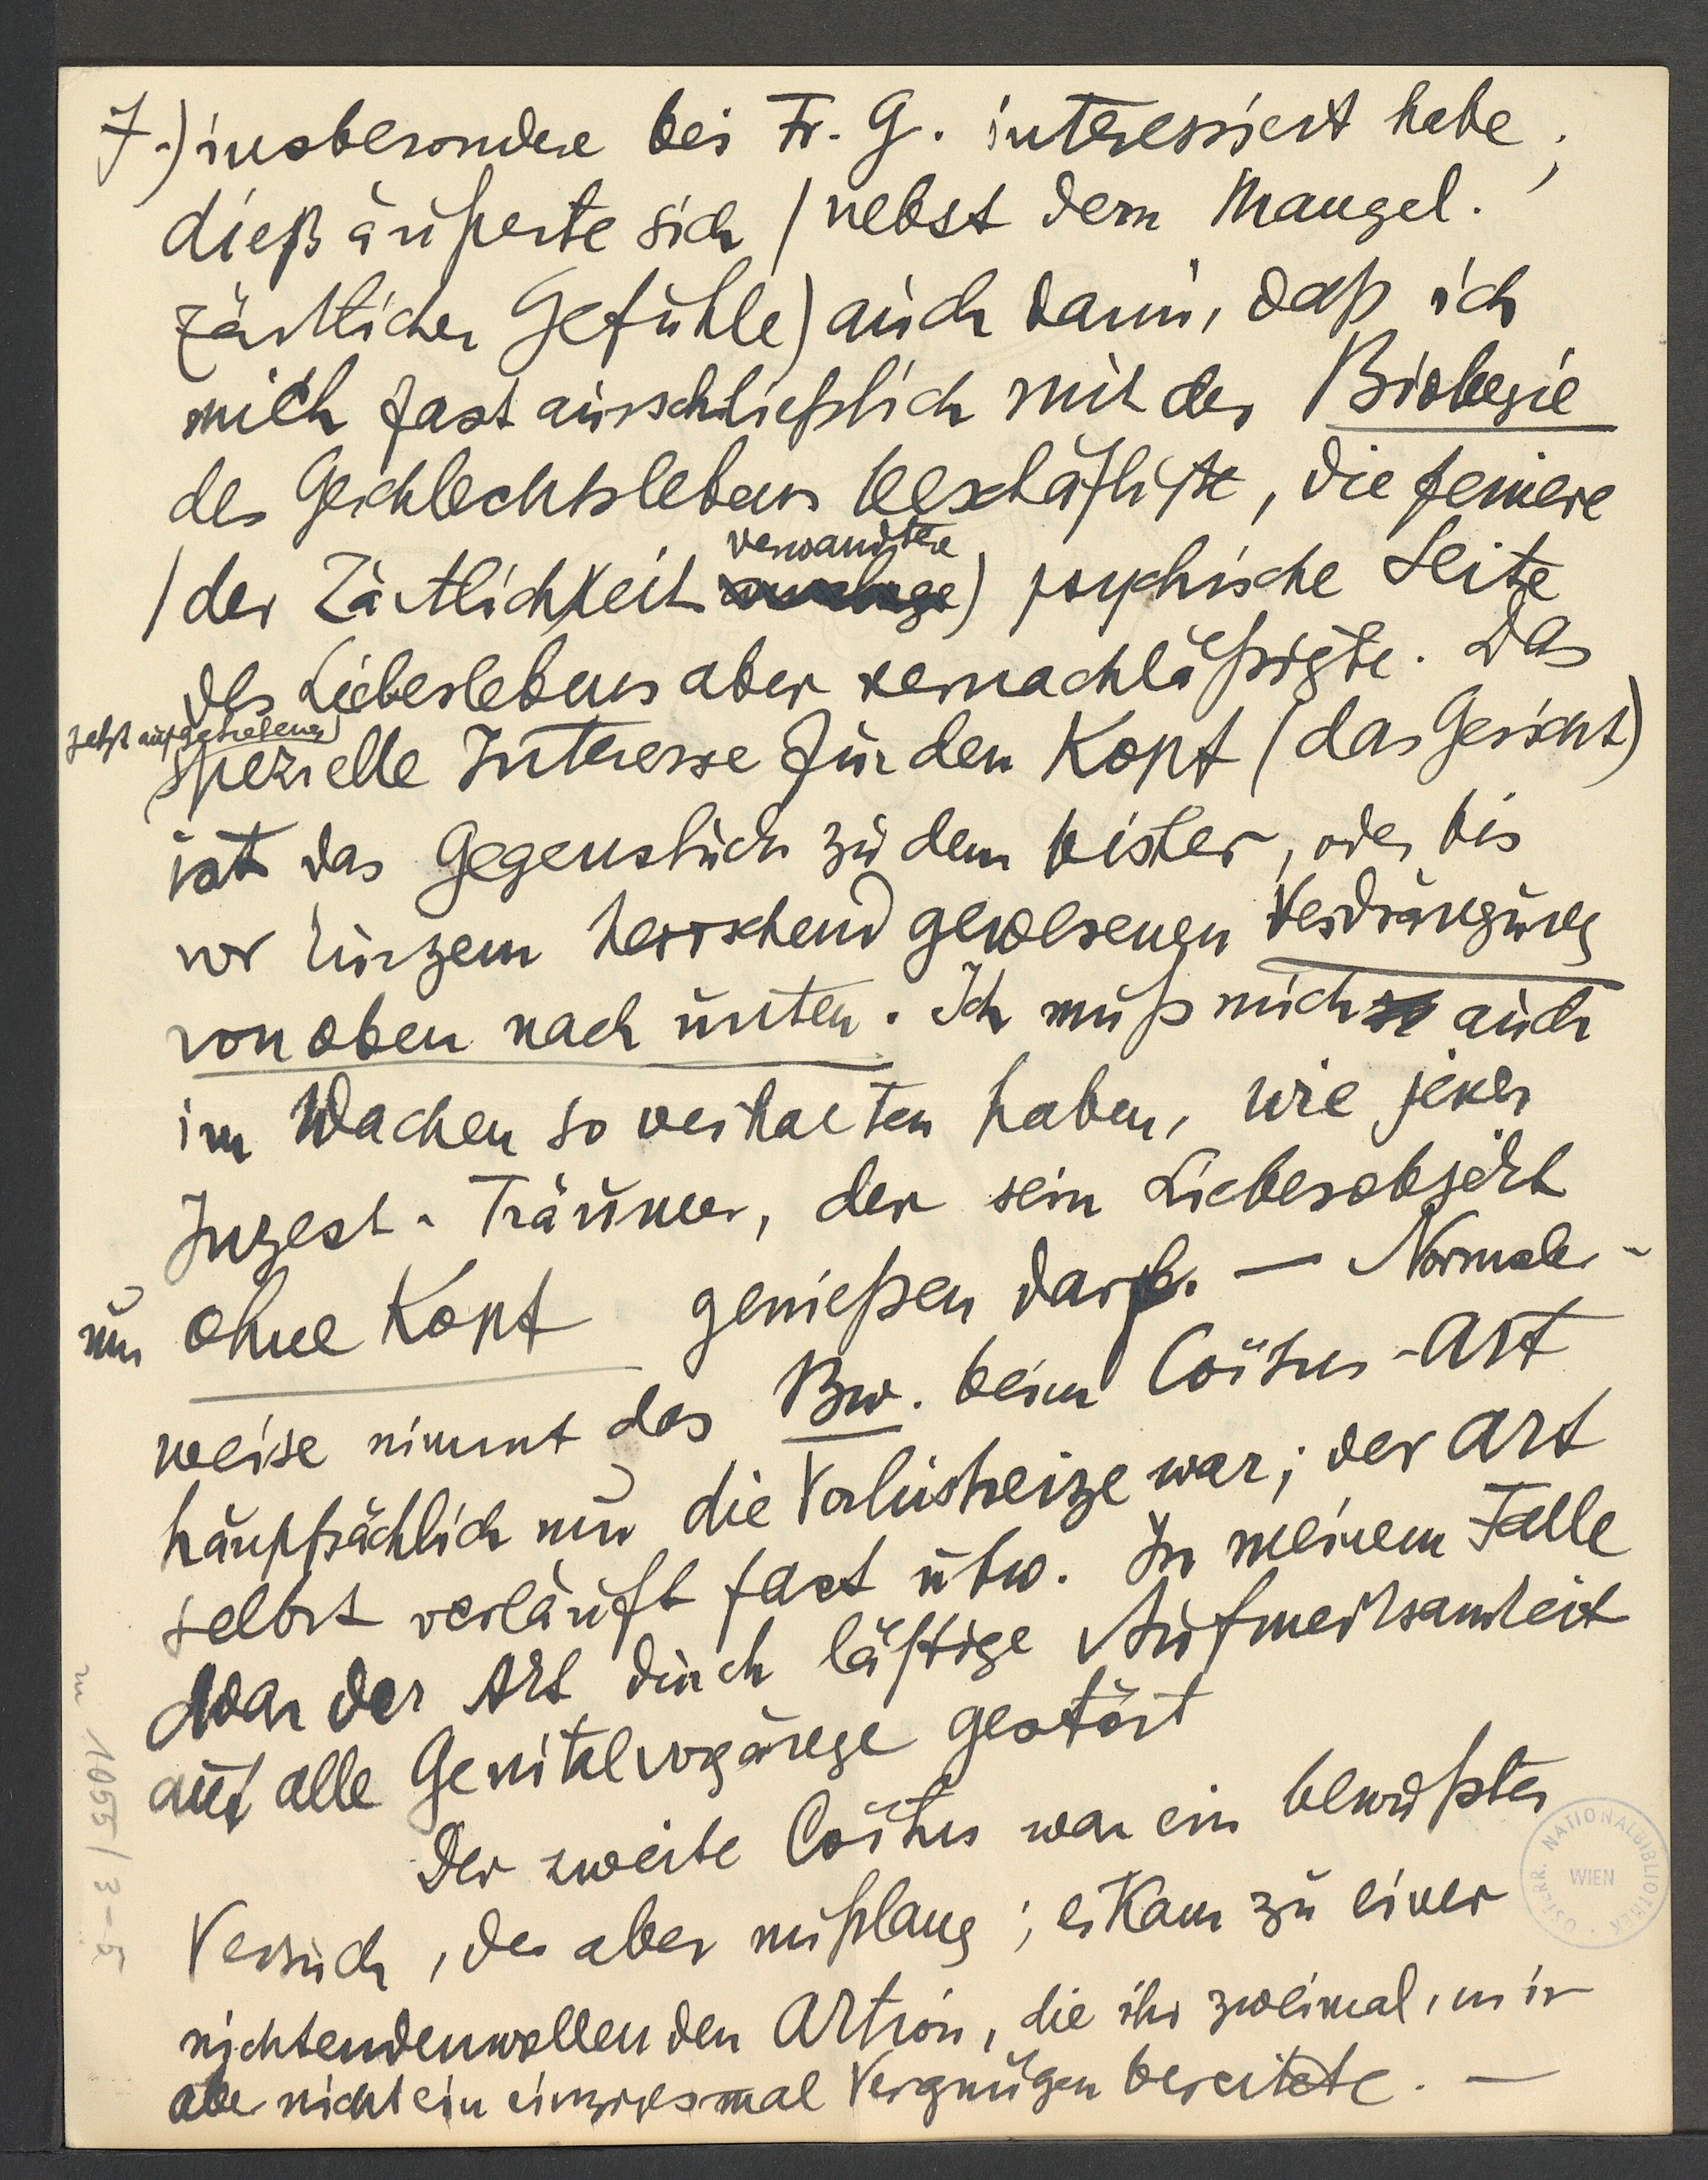 7.) insbesondere bei Fr. G. interessiert habe;
dieß äußerte sich (nebst dem Mangel
zärtlicher Gefühle) auch darin, daß ich
mich fast ausschließlich mit der Biologie
des Geschlechtslebens beschäftigte, die feinere
(der Zärtlichkeit verwandtere) psychische Seite
des Liebeslebens aber vernachläßigte. Das
jetzt aufgetretene
spezielle Interesse für den Kopf (das Gesicht)
ist das Gegenstück zu dem bisher, oder bis
vor kurzem herrschend gewesenen Verdrängung
von oben nach unten. Ich muß mich auch
im Wachen so verhalten haben, wie jener
Inzest-Träumer, der sein Liebesobjekt
nur ohne Kopf genießen darf. — Normaler-
weise nimmt das Bw. beim Coitus-Akt
hauptsächlich nur die Vorlustreize war; der Akt
selbst verläuft fast ubw. In meinem Falle
war der Akt durch lästige Aufmerksamkeit
auf alle Genitalvorgänge gestört
Der zweite Coitus war ein bewußter
Versuch, der aber mißlang; es kam zu einer
nichtendenwollenden Aktion, die ihr zweimal, mir
aber nicht ein einziges mal Vergnügen bereitete. —
1055/3-5
ÖSTERR. NATIONALBIBLIOTHEK
WIEN